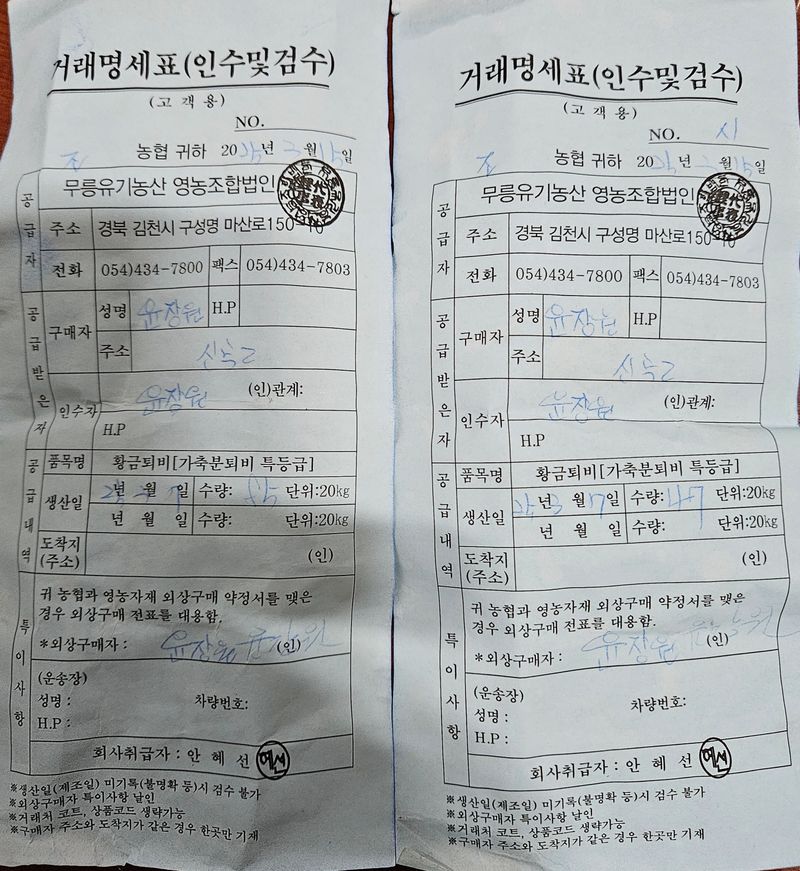 거래명세표(인수및검수)
(고객용)
NO.
농협 귀하 20 년 월 일
공급자
무릉유기농산 영농조합법인
주소 경북 김천시 구성명 마산로150-10
전화 054)434-7800 팩스 054)434-7803
공급받은자
구매자 성명 윤장원 H.P
주소 신속2
인수자 윤장원 (인)관계:
H.P
공급내역
품목명 황금퇴비[가축분퇴비 특등급]
생산일 년 월 일 수량: 단위:20kg
년 월 일 수량: 단위:20kg
도착지(주소) (인)
특이사항
귀 농협과 영농자재 외상구매 약정서를 맺은
경우 외상구매 전표를 대용함.
*외상구매자 : 윤장원 윤장원 (인)
(운송장)
성명 : 차량번호:
H.P :
회사취급자 : 안혜선 혜선
※생산일(제조일) 미기록(불명확 등)시 검수 불가
※외상구매자 특이사항 날인
※거래처 코트, 상품코드 생략가능
※구매자 주소와 도착지가 같은 경우 한곳만 기재
거래명세표(인수및검수)
(고객용)
NO.
농협 귀하 20 년 월 일
공급자
무릉유기농산 영농조합법인
주소 경북 김천시 구성명 마산로150-10
전화 054)434-7800 팩스 054)434-7803
공급받은자
구매자 성명 윤장원 H.P
주소 신속2
인수자 윤장원 (인)관계:
H.P
공급내역
품목명 황금퇴비[가축분퇴비 특등급]
생산일 년 월 17일 수량: 단위:20kg
년 월 일 수량: 단위:20kg
도착지(주소) (인)
특이사항
귀 농협과 영농자재 외상구매 약정서를 맺은
경우 외상구매 전표를 대용함.
*외상구매자 : 윤장원 윤장원 (인)
(운송장)
성명 : 차량번호:
H.P :
회사취급자 : 안혜선 혜선
※생산일(제조일) 미기록(불명확 등)시 검수 불가
※외상구매자 특이사항 날인
※거래처 코트, 상품코드 생략가능
※구매자 주소와 도착지가 같은 경우 한곳만 기재